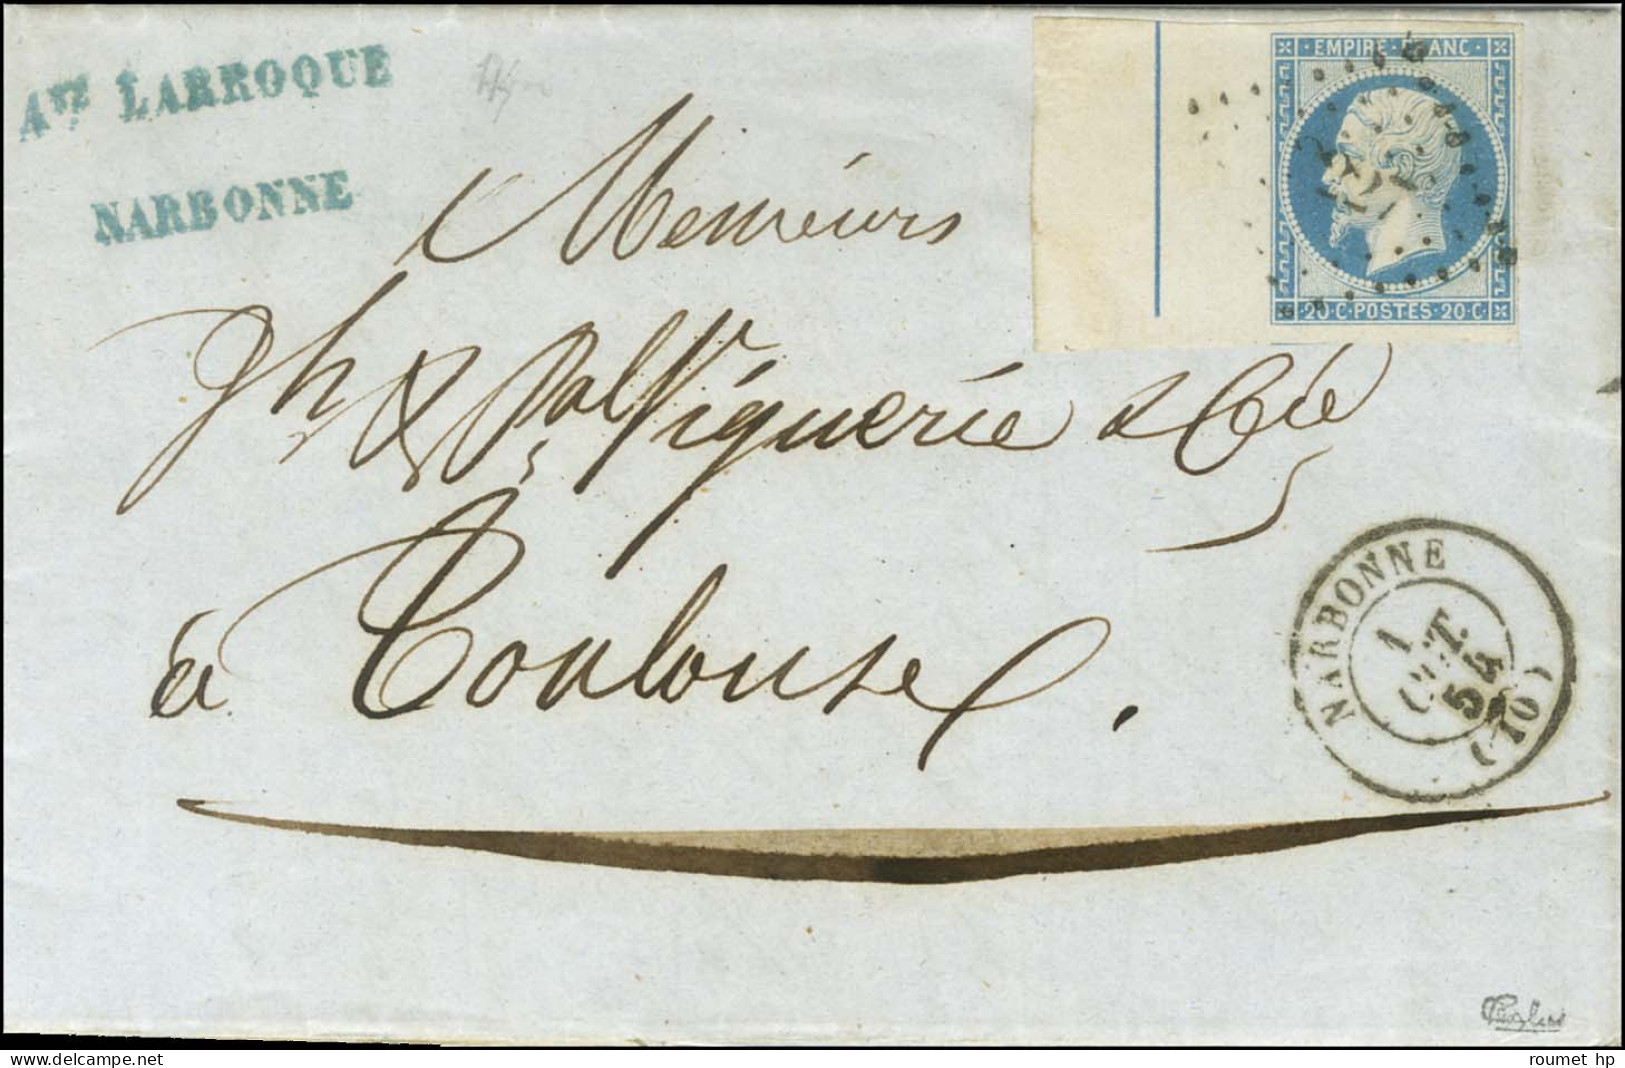 Ate LARROQUE
NARBONNE
EMPIRE FRANC
20·C·POSTES·20·C·
Messieurs
Jh & Pal Viguerie & Cie
à Toulouse.
NARBONNE
1
OCT.
54
(10)
roumet hp